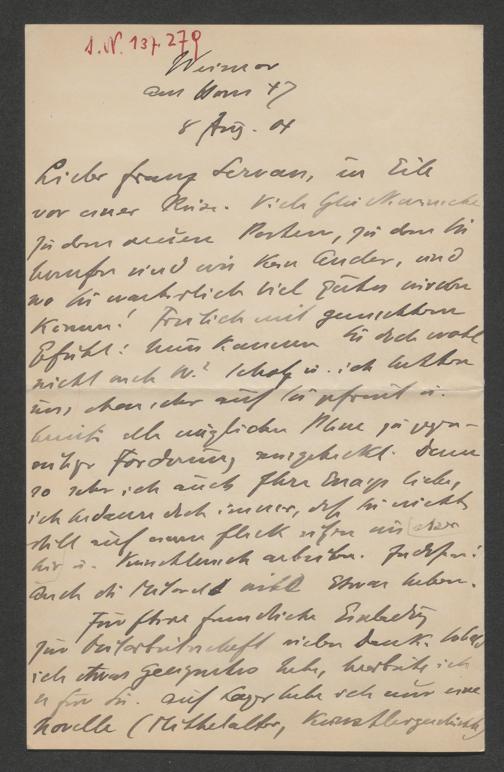 I.N. 137.279
Weimar
am Horn 47
8 Aug. 04
Lieber Franz Servaes, in Eile
vor einer Reise. Viele Glückwünsche
zu dem neuen Posten, zu dem Sie
berufen sind wie kein Ander, und
wo Sie wahrlich viel Gutes wirken
können! Freilich mit gemischtem
Gefühl: nun kommen Sie doch wohl
nicht nach W.? Scholz u. ich hatten
uns, eben sehr auf Sie gefreut u.
bereits alle möglichen Pläne zu gegen-
seitiger Förderung ausgeheckt. Denn
so sehr ich auch Ihre Essays liebe,
ich bedaure doch immer, daß Sie nicht
still auf einem Fleck sitzen wie
hier u. künstlerisch arbeiten. Indessen:
auch die Mitwelt will etwas haben.
Für Ihre freundliche Einladung
zur Mitarbeiterschaft vielen Dank. Sobald
ich etwas Geeignetes habe, ich
es für Sie. Auf Lager habe ich nur eine
Novelle (Mittelalter, Künstlergeschichte)